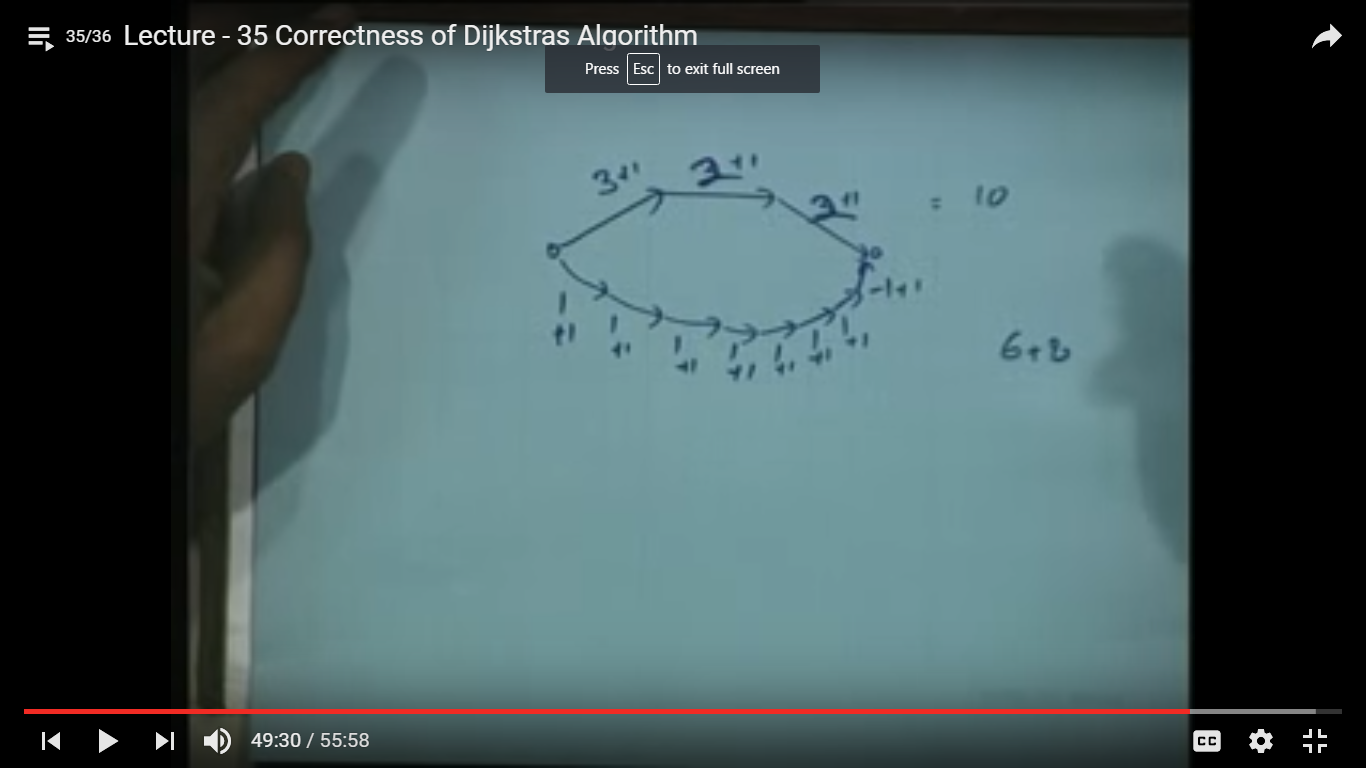 35/36 Lecture - 35 Correctness of Dijkstras Algorithm
Press Esc to exit full screen
3+1 3+1 3+1 = 10
-1+1
1 1 1 1 1 1 1
+1 +1 +1 +1 +1 +1 +1
6+8
49:30 / 55:58
CC